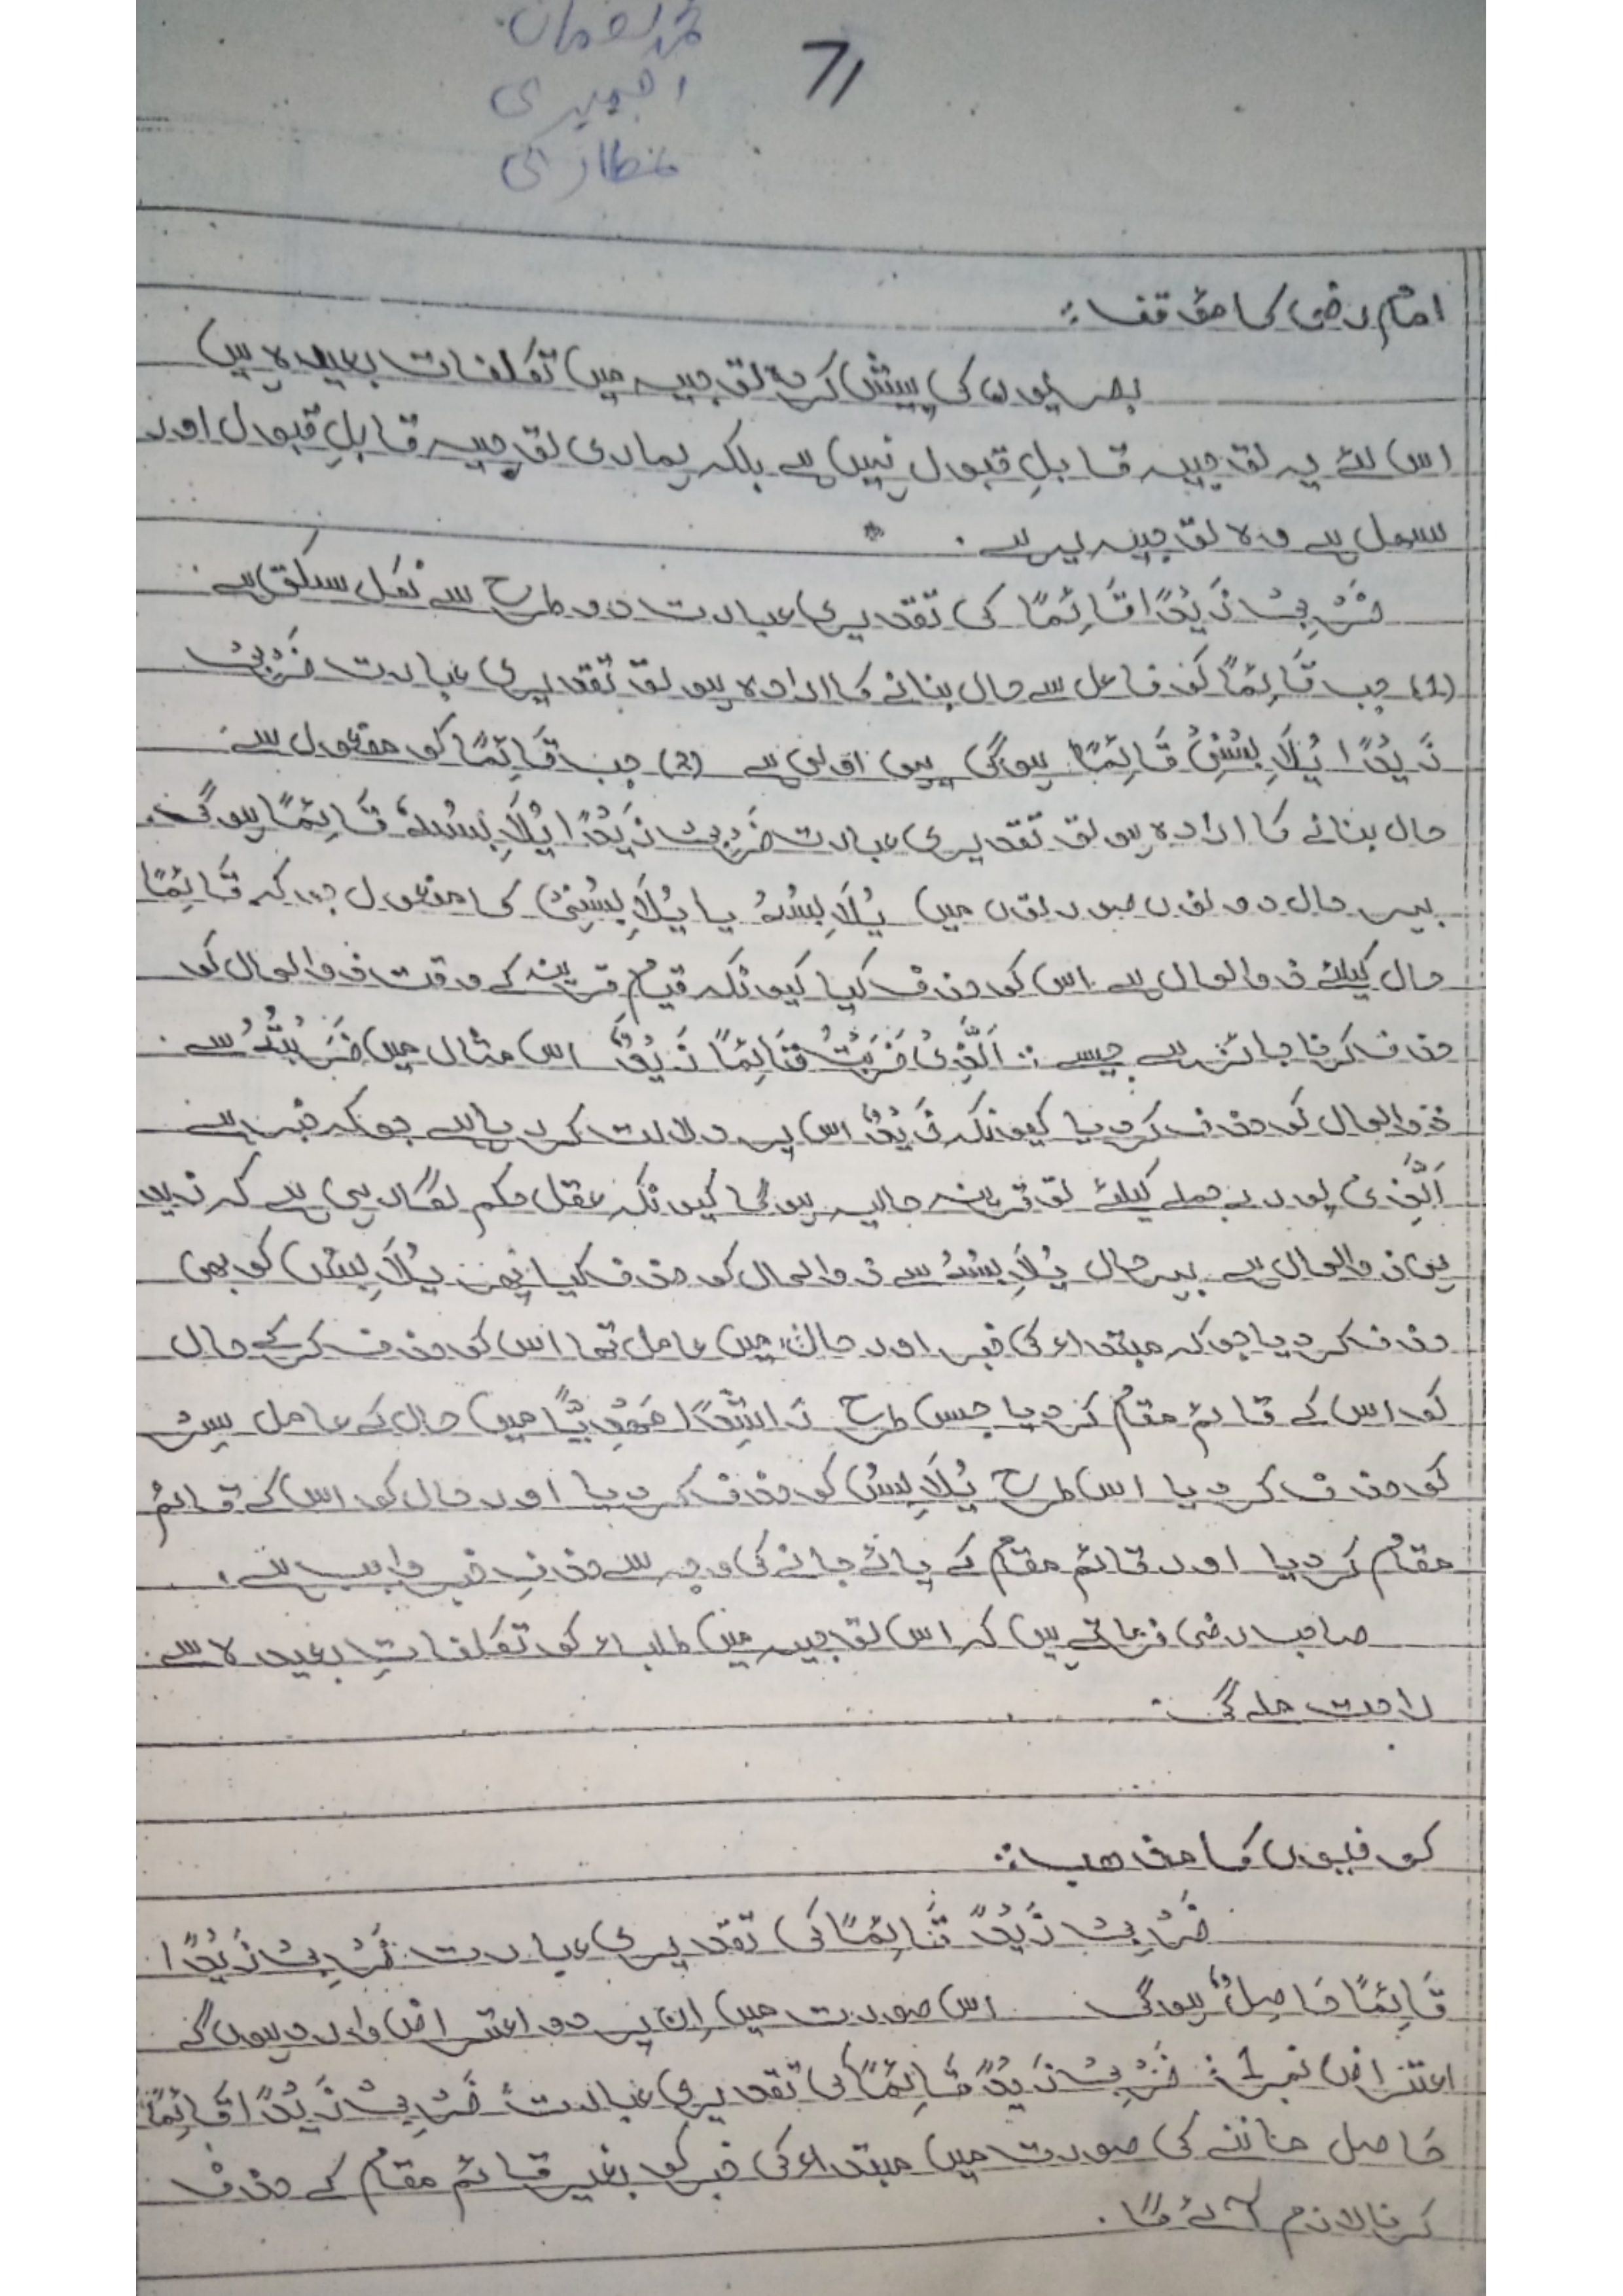 محمد لقمان
اجمیری
عطاری
71
امام رضی کا مؤقف :
بصریوں کی پیش کردہ توجیہ میں تکلفات بعیدہ ہیں
اس لئے یہ توجیہ قابلِ قبول نہیں ہے بلکہ ہماری توجیہ قابلِ قبول اور
سہل ہے وہ توجیہ یہ ہے .
ضَرْبِیْ زَیْدًا قَائِمًا کی تقدیری عبارت دو طرح سے نکل سکتی ہے .
(1) جب قَائِمًا کو فاعل سے حال بنانے کا ارادہ ہو تو تقدیری عبارت ضَرْبِیْ
زَیْدًا یُلَابِسُنِیْ قَائِمًا ہوگی یہی اولیٰ ہے (2) جب قَائِمًا کو مفعول سے
حال بنانے کا ارادہ ہو تو تقدیری عبارت ضَرْبِیْ زَیْدًا یُلَابِسُهُ قَائِمًا ہوگی.
بہر حال دونوں صورتوں میں یُلَابِسُهُ یا یُلَابِسُنِیْ کا مفعول جو کہ قَائِمًا
حال کیلئے ذوالحال ہے اس کو حذف کیا کیونکہ قیامِ قرینہ کے وقت ذوالحال کو
حذف کرنا جائز ہے جیسے : اَلَّذِیْ ضَرَبْتُ قَائِمًا زَیْدٌ اس مثال میں ضَرَبْتُهُ سے
ذوالحال کو حذف کر دیا کیونکہ زَیْدٌ اس پر دلالت کر رہا ہے جو کہ خبر ہے
اَلَّذِیْ پورے جملے کیلئے تو قرینہ حالیہ ہوگا کیونکہ عقل حکم لگا رہی ہے کہ زید
ہی ذوالحال ہے بہر حال یُلَابِسُهُ سے ذوالحال کو حذف کیا پھر یُلَابِسُ کو بھی
حذف کر دیا جو کہ مبتداء کی خبر اور حال میں عامل تھا اس کو حذف کر کے حال
کو اس کے قائم مقام کر دیا جس طرح رَاشِدًا مَهْدِیًّا میں حال کے عامل سِرْ
کو حذف کر دیا اس طرح یُلَابِسُ کو حذف کر دیا اور حال کو اس کے قائم
مقام کر دیا اور قائم مقام کے پائے جانے کی وجہ سے حذفِ خبر واجب ہے .
صاحب رضی فرماتے ہیں کہ اس توجیہ میں طلباء کو تکلفاتِ بعیدہ سے
راحت ملے گی .
کوفیوں کا مذھب :
ضَرْبِیْ زَیْدًا قَائِمًا کی تقدیری عبارت ضَرْبِیْ زَیْدًا
قَائِمًا حَاصِلٌ ہوگی اس صورت میں اِن پر دو اعتراض وارد ہوں گے
اعتراض نمبر 1 : ضَرْبِیْ زَیْدًا قَائِمًا کی تقدیری عبارت ضَرْبِیْ زَیْدًا قَائِمًا
حَاصِل ماننے کی صورت میں مبتداء کی خبر کو بغیر قائم مقام کے حذف
کرنا لازم آئے گا .